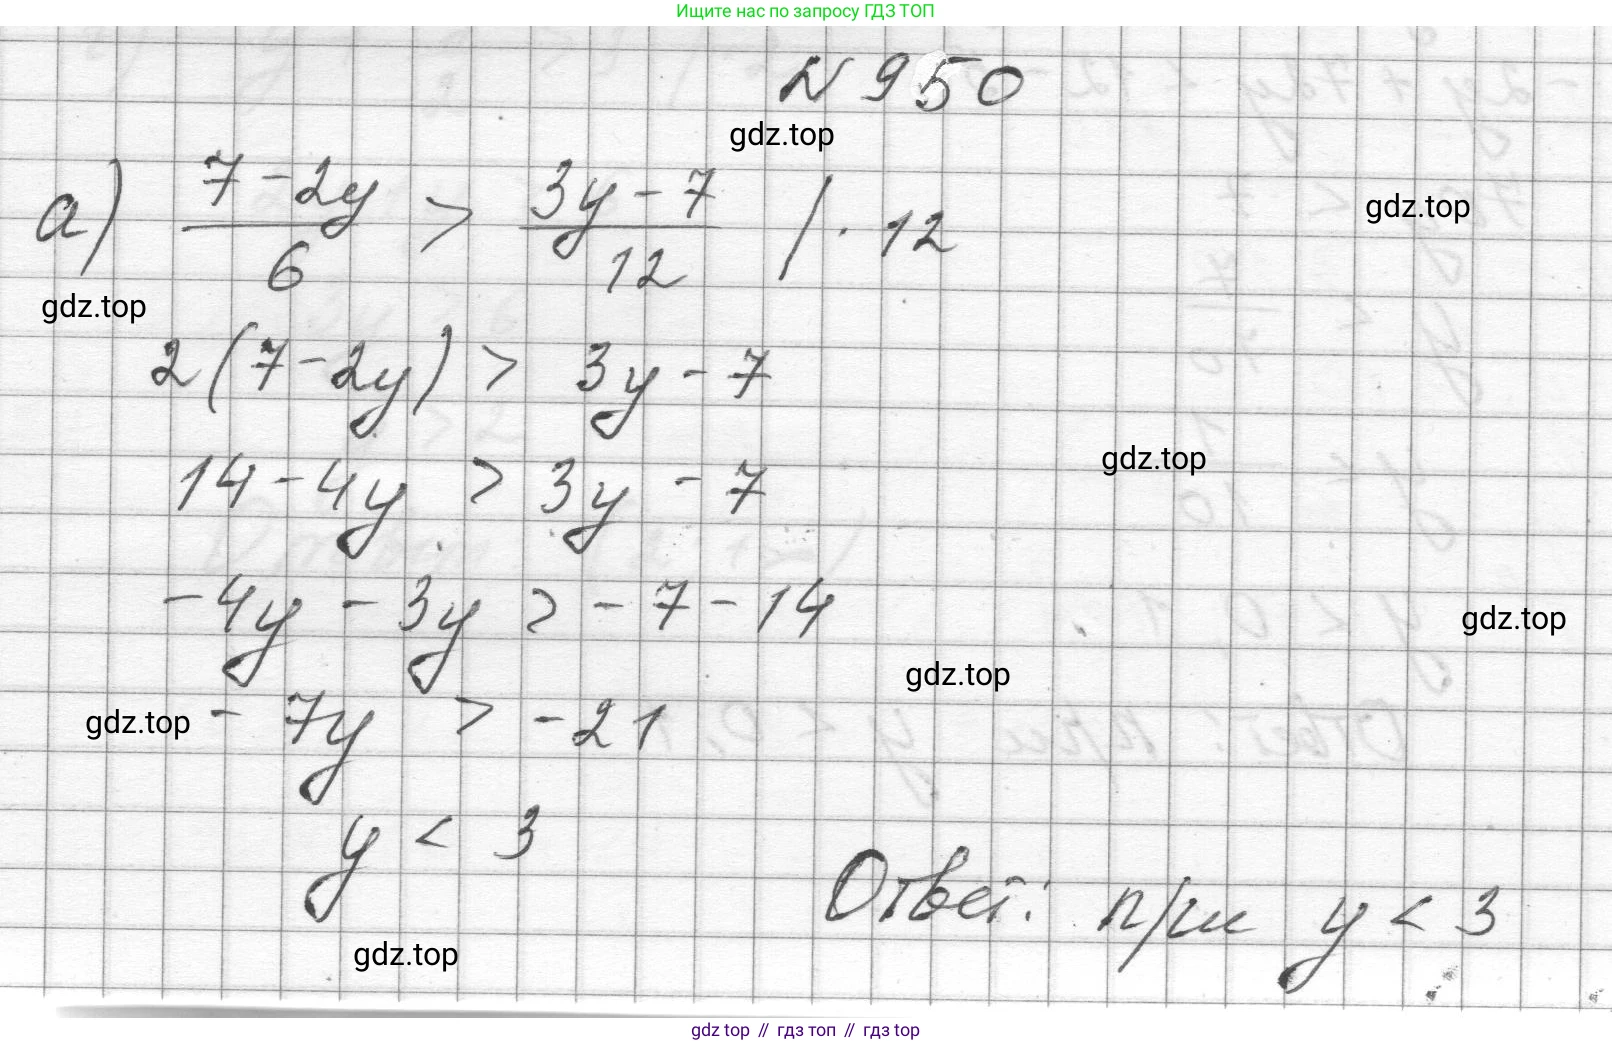 Ищите нас по запросу ГДЗ ТОП
N 950
gdz.top
а) (7 - 2y)/6 > (3y - 7)/12 / · 12
gdz.top
gdz.top
2(7 - 2y) > 3y - 7
gdz.top
14 - 4y > 3y - 7
-4y - 3y > -7 - 14
gdz.top
gdz.top
gdz.top
-7y > -21
y < 3
Ответ: при y < 3
gdz.top
gdz top // гдз топ // гдз top